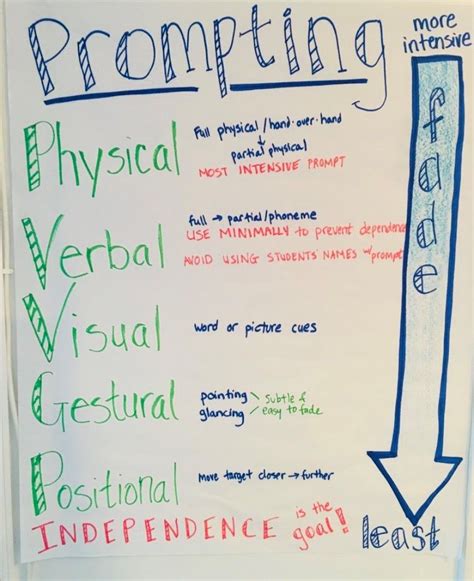 Prompting
more
intensive
fade
Physical
Full physical / hand-over-hand
↓
partial physical
MOST INTENSIVE PROMPT
Verbal
full → partial/phoneme
USE MINIMALLY to prevent dependence
AVOID USING STUDENTS' NAMES w/prompt
Visual
word or picture cues
Gestural
pointing
glancing
subtle &
easy to fade
Positional
Move target closer → further
INDEPENDENCE is the goal!
least